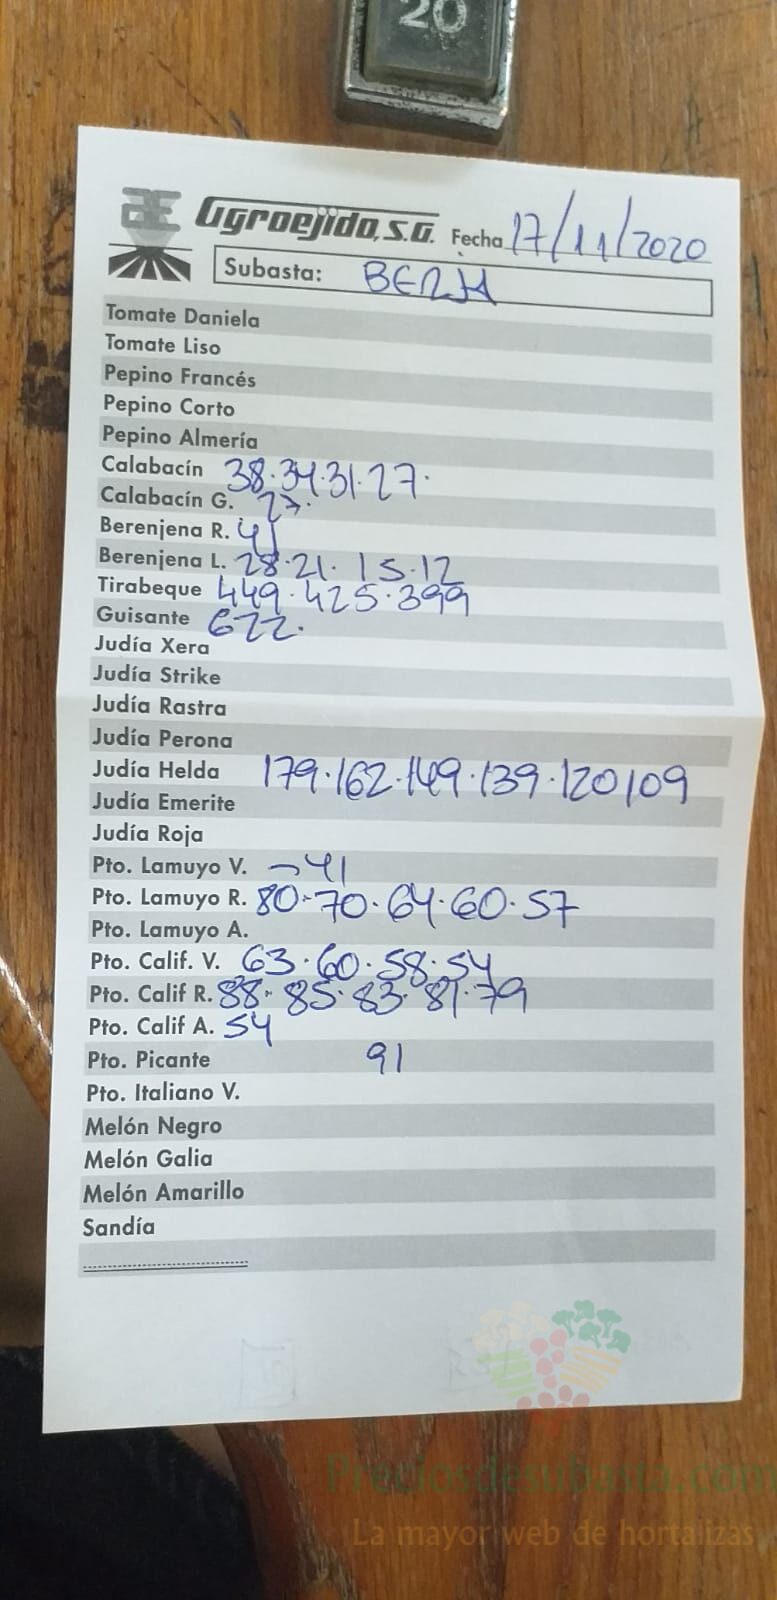 20
Agroejido, S.G. Fecha 17/11/2020
Subasta: BERJA
Tomate Daniela
Tomate Liso
Pepino Francés
Pepino Corto
Pepino Almería
Calabacín 38.34.31.27.
Calabacín G. 27.
Berenjena R. 41
Berenjena L. 28.21. 15.12
Tirabeque 449.425.399
Guisante 622.
Judía Xera
Judía Strike
Judía Rastra
Judía Perona
Judía Helda 179.162.149.139.120109
Judía Emerite
Judía Roja
Pto. Lamuyo V. 41
Pto. Lamuyo R. 80.70.64.60.57
Pto. Lamuyo A.
Pto. Calif. V. 63.60.58.54
Pto. Calif R. 88.85.83.81.79
Pto. Calif A. 54
Pto. Picante 91
Pto. Italiano V.
Melón Negro
Melón Galia
Melón Amarillo
Sandía
Preciosdesubasta.com
La mayor web de hortalizas